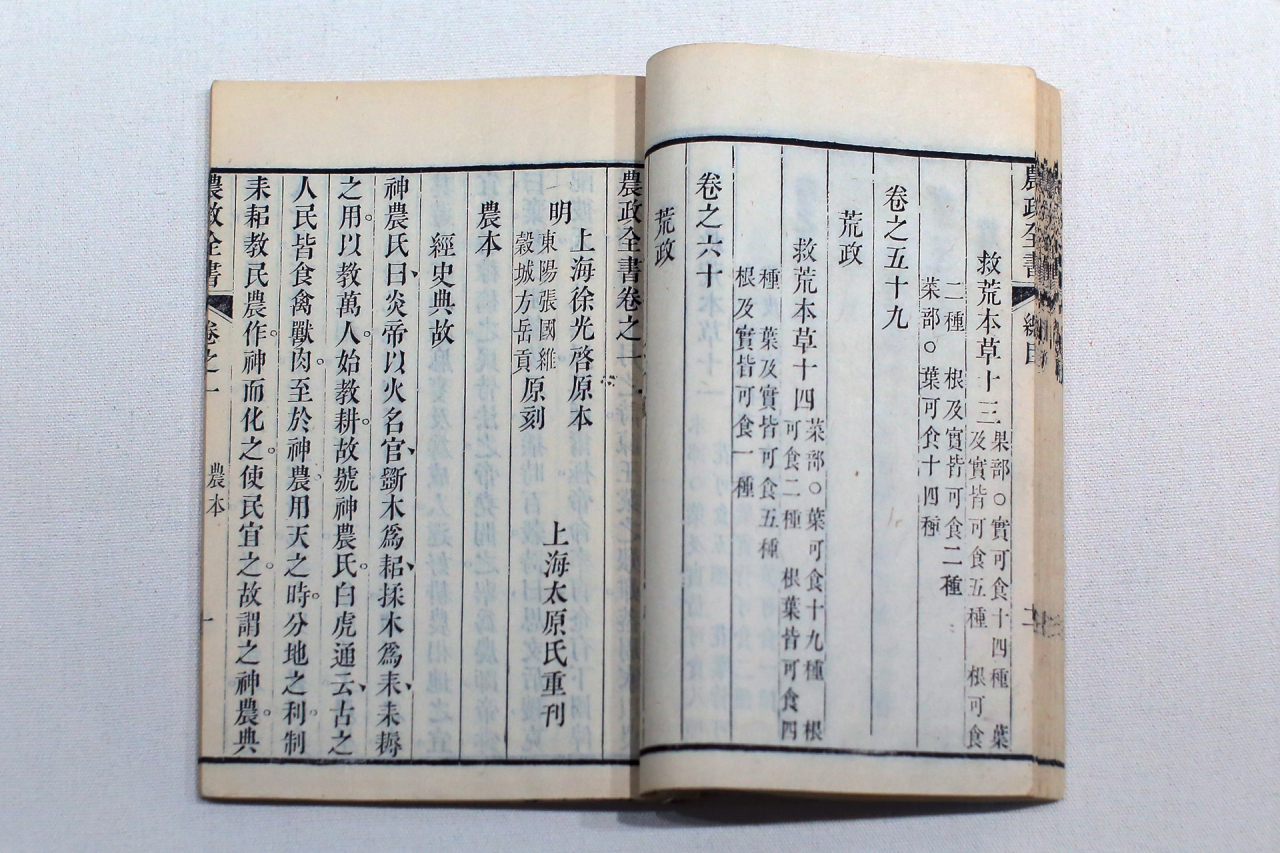 農政全書
總目
救荒本草十三
果部○實可食十四種　葉
及實皆可食五種　根可食
二種　根及實皆可食二種
菜部○葉可食十四種
卷之五十九
荒政
救荒本草十四
菜部○葉可食十九種　根
可食二種　根葉皆可食四
種　葉及實皆可食五種
根及實皆可食一種
卷之六十
荒政
農政全書卷之一
明
上海徐光啓原本
東陽張國維
穀城方岳貢
原刻
上海太原氏重刊
農本
經史典故
神農氏曰炎帝以火名官、斵木爲耜、揉木爲耒、耒耨
之用。以敎萬人。始敎耕。故號神農氏。白虎通云、古之
人民皆食禽獸肉。至於神農。用天之時。分地之利。制
耒耜敎民農作。神而化之。使民宜之。故謂之神農。典
農政全書
卷之一
農本
一